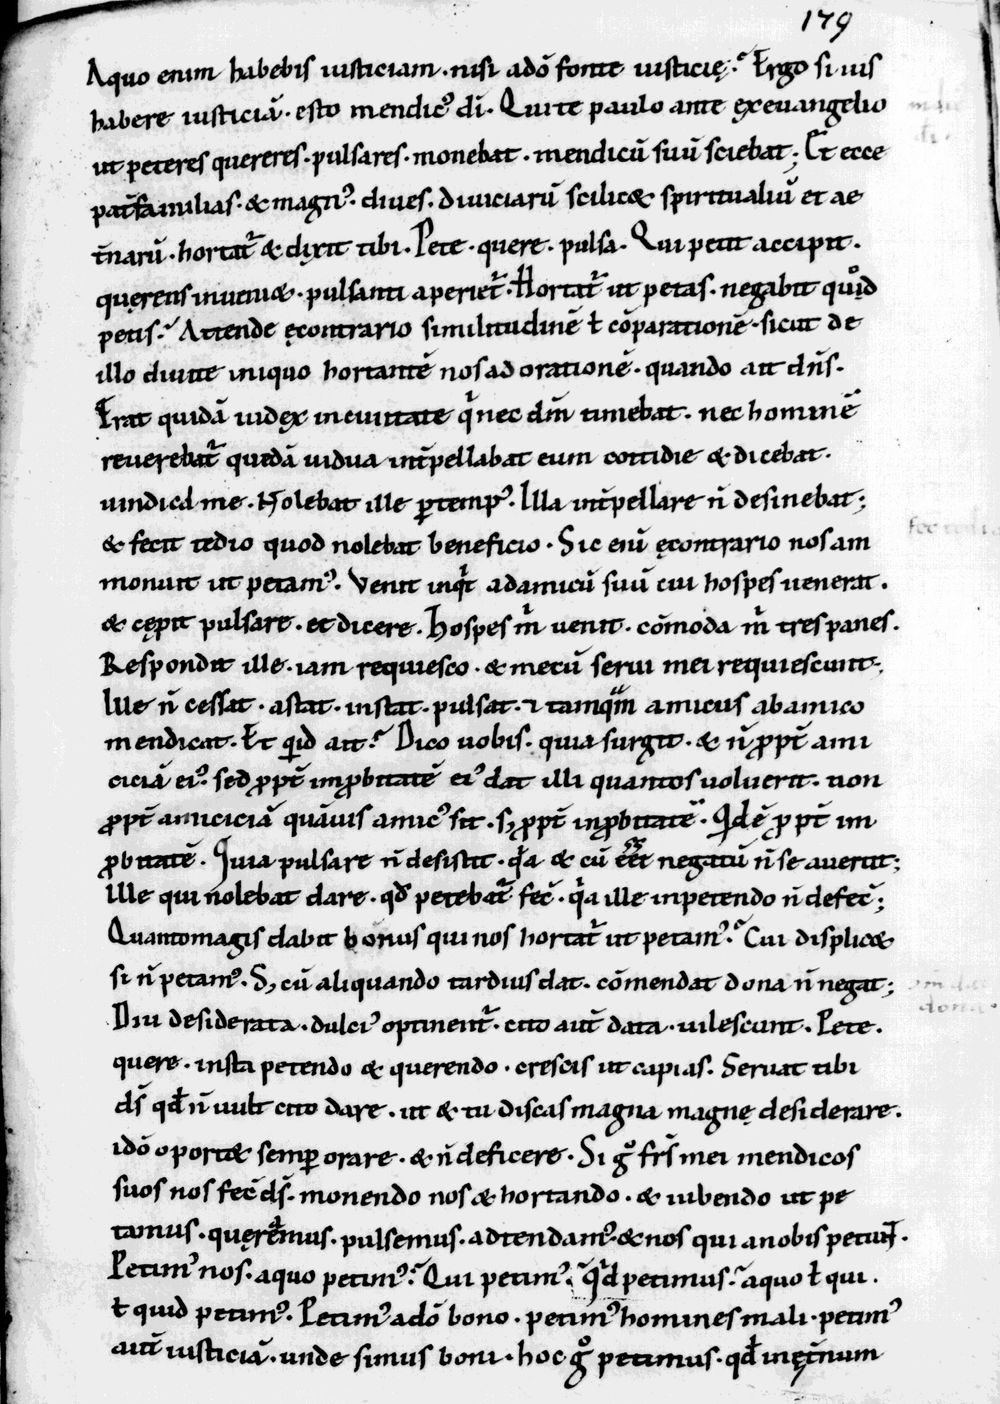 179
Aquo enim habebis iusticiam · nisi adō fonte iusticię? Ergo si uis
habere iusticiā · esto mendicꝰ dī · Qui te paulo ante ęxevangelio
ut peteres quereres · pulsares · monebat · mendicū suū sciebat; Et ecce
pat̄familias · & magnꝰ · diues · diuiciarū scilic& spiritualiū et ae
t̄narū · hortat᷑ & dixit tibi · Pete · quere · pulsa · Qui petit accipit ·
quęrens inueni& · pulsanti aperiet᷑ · Hortat᷑ ut petas · negabit quod
petis? Attende ęcontrario similitudinē ł cōparationē · sicut de
illo diuite iniquo hortantē nos ad orationē · quando ait dn̄s ·
Erat quidā iudęx in ciuitate qͥ nec dm̄ timebat · nec hominē
reuerebat᷑ quedā uidua int̄pellabat eum cottidie & dicebat ·
uindica me · Nolebat ille ꝑ tempꝰ · Illa int̄pellare n̄ desinebat;
& fecit tedio quod nolebat beneficio · Sic enī ęcontrario nos am
monuit ut petamꝰ · Venit inqͥt ad amicū suū cui hospes uenerat ·
& cępit pulsare · et dicere · Hospes m̄ uenit · cōmoda m̄ tres panes ·
Respondit ille · iam requiesco · & mecū serui mei requiescunt;
Ille n̄ cessat · astat · instat · pulsat · ⁊ tamqᵘm amicus ab amico
mendicat · Et qͥd ait? Dico uobis · quia surgit · & n̄ ꝓpt̄ ami
ciciā eiꝰ · sed ꝓpt̄ inꝓbitatē eiꝰ dat illi quantos uoluerit · non
ꝓpt̄ amiciciā quāuis amicꝰ sit · s; ꝓpt̄ inꝓbitatē · Qͥd ē ꝓpt̄ im
ꝓbitatē · Quia pulsare n̄ destitit · qͥa & cū negatū n̄ se auertit;
Ille qui nolebat dare · qd̄ petebat᷑ fec̄ · qͥa ille in petendo n̄ defec̄;
Quanto magis dabit bonus qui nos hortat᷑ ut petamꝰ? Cui displic&
si n̄ petamꝰ · S; cū aliquando tardius dat · cōmendat dona n̄ negat;
Diu desiderata · dulciꝰ optinent᷑ · cito aut̄ data · uilescunt · Pete ·
quere · insta petendo & querendo · crescis ut capias · Seruat tibi
ds̄ qd̄ n̄ uult cito dare · ut & tu discas magna magnę desiderare ·
idō oport& semꝑ orare · & n̄ deficere · Si gͦ frs̄ mei mendicos
suos nos fec̄ ds̄ · monendo nos & hortando · & iubendo ut pe
tamus · quęremus · pulsemus · adtendamꝰ · & nos qui a nobis petunt̄ ·
Petimꝰ nos · a quo petimꝰ? Qui petimꝰ; qͥd petimus? a quo ł qui ·
ł quid petimꝰ · Petimꝰ adō bono · petimꝰ homines mali · petimꝰ
aut̄ iusticiā · unde simus boni · hoc gͦ petimus · qd̄ in ęt̄num